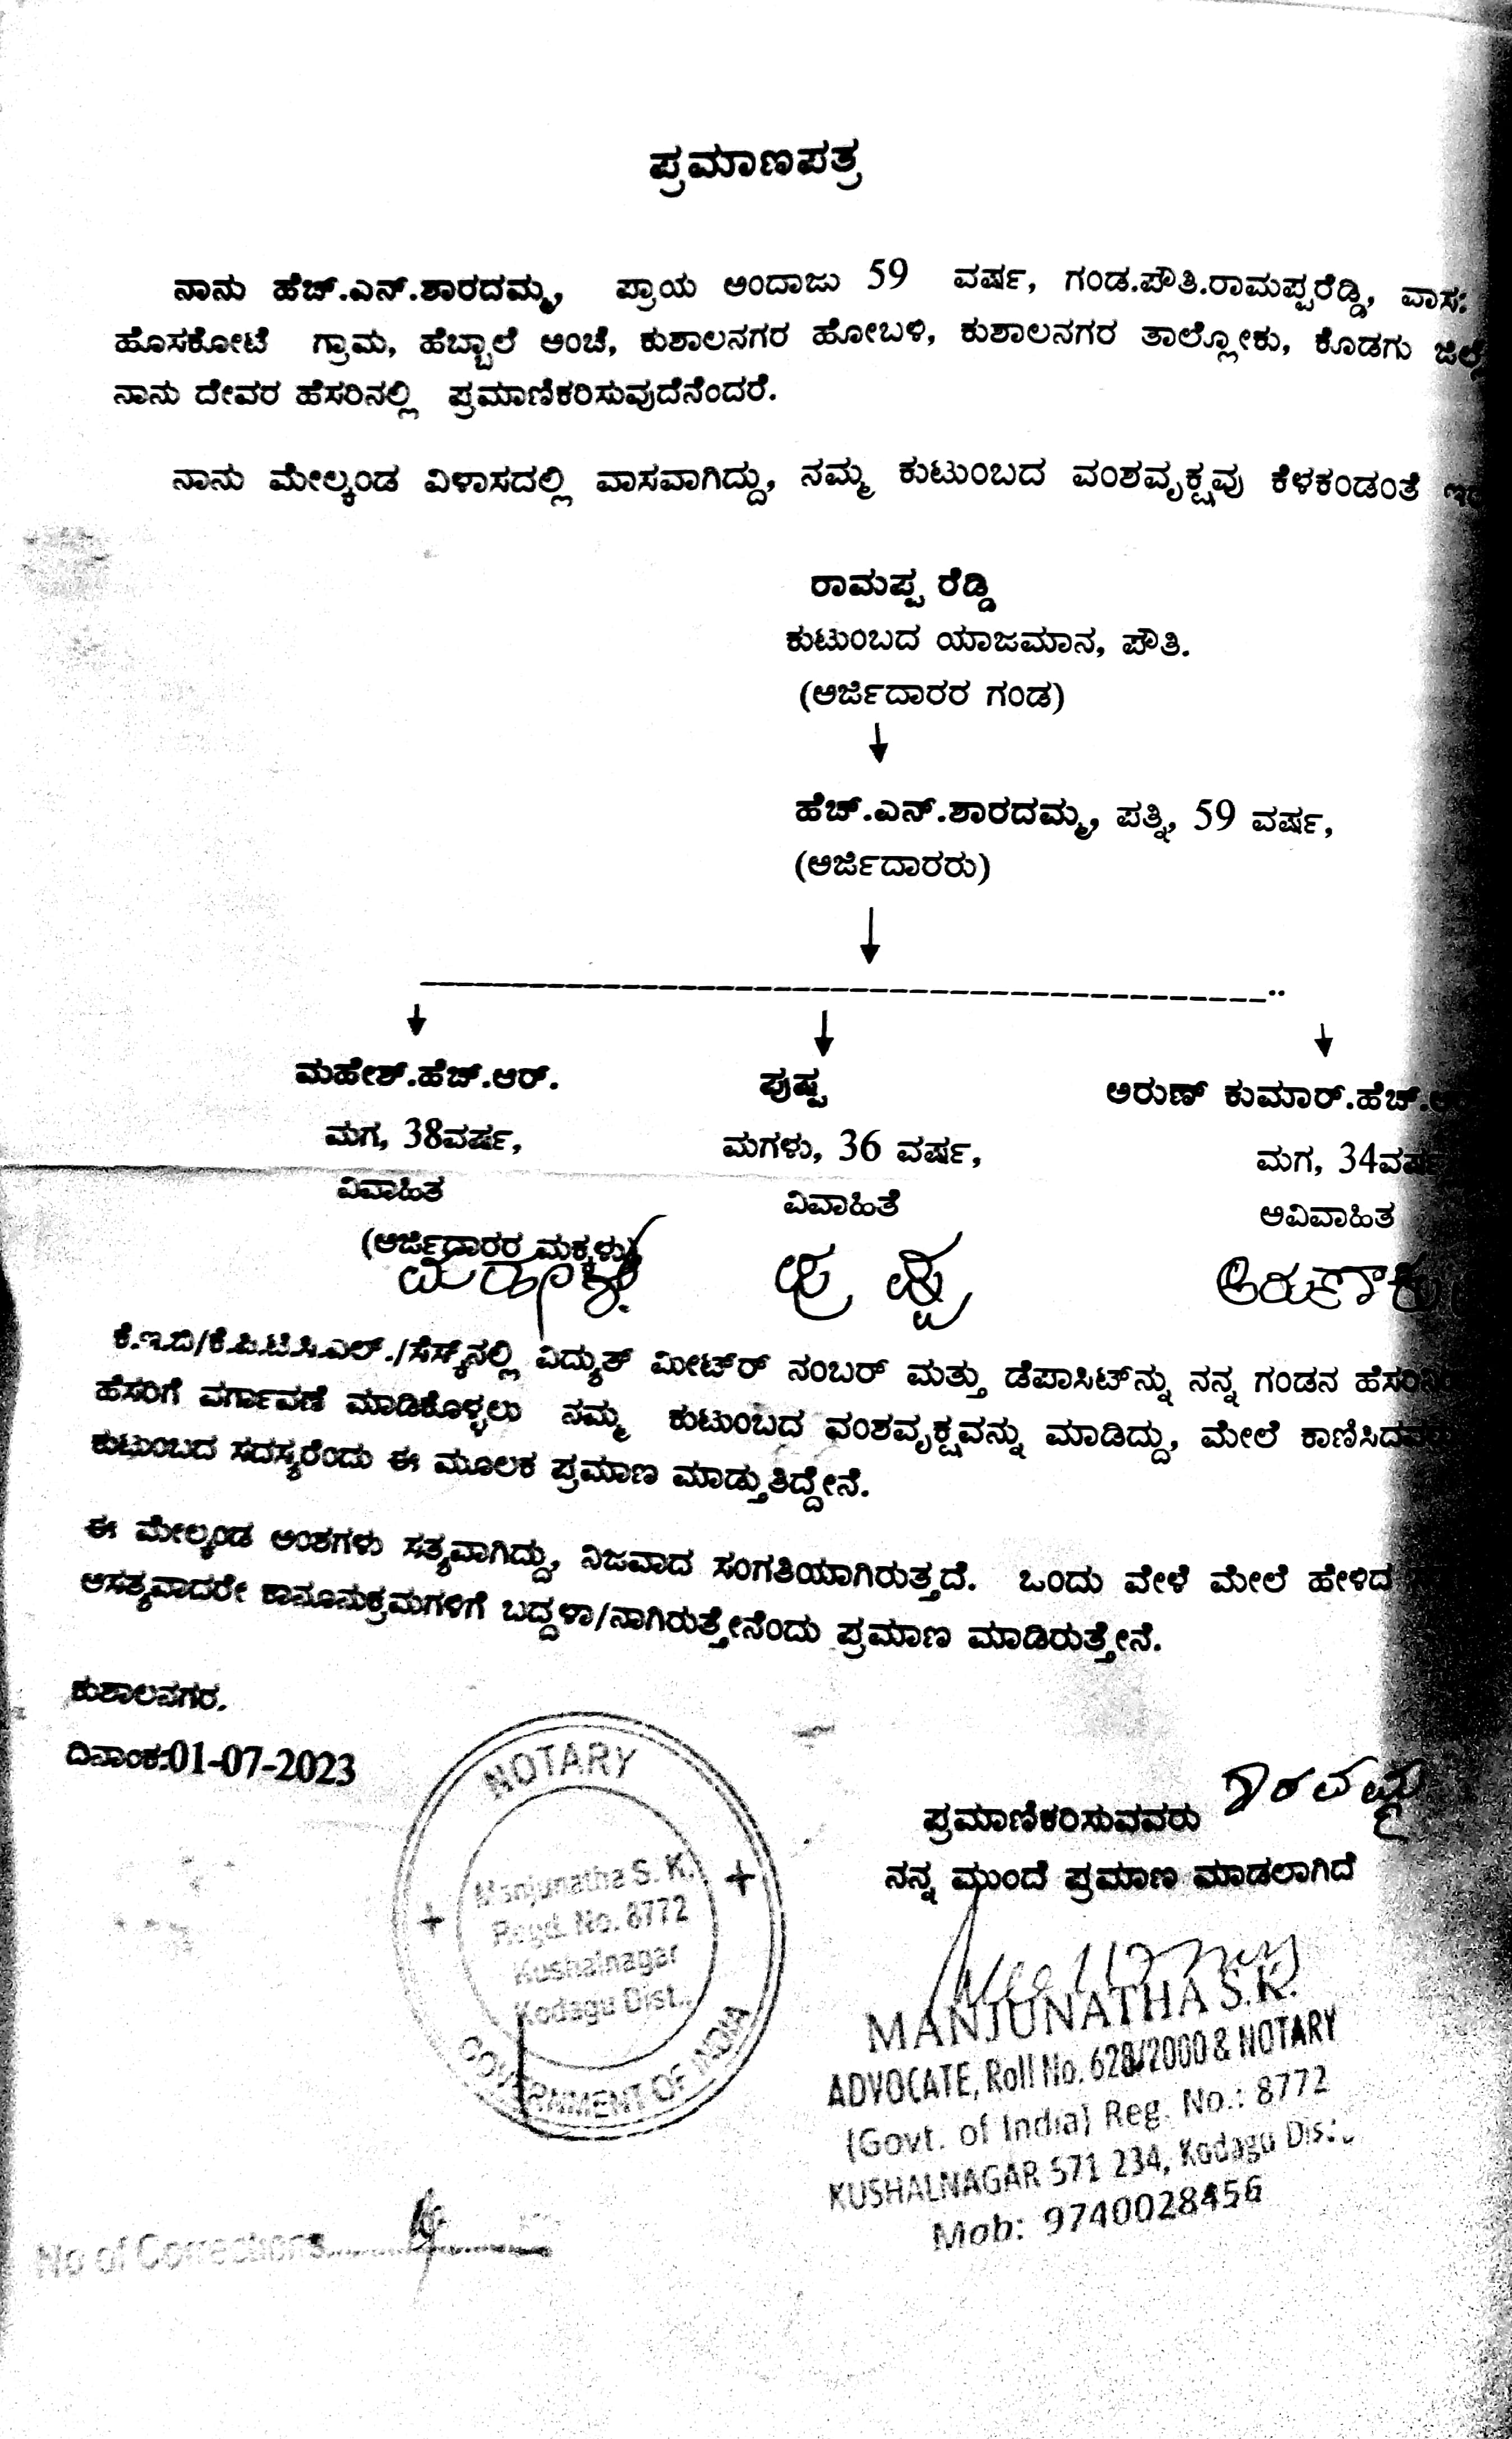 ಪ್ರಮಾಣಪತ್ರ
ನಾನು ಹೆಚ್.ಎನ್.ಶಾರದಮ್ಮ, ಪ್ರಾಯ ಅಂದಾಜು 59 ವರ್ಷ, ಗಂಡ.ಪೌತಿ.ರಾಮಪ್ಪರೆಡ್ಡಿ, ವಾಸ:
ಹೊಸಕೋಟೆ ಗ್ರಾಮ, ಹೆಬ್ಬಾಲೆ ಅಂಚೆ, ಕುಶಾಲನಗರ ಹೋಬಳಿ, ಕುಶಾಲನಗರ ತಾಲ್ಲೋಕು, ಕೊಡಗು ಜಿಲ್ಲೆ
ನಾನು ದೇವರ ಹೆಸರಿನಲ್ಲಿ ಪ್ರಮಾಣಿಕರಿಸುವುದೆನೆಂದರೆ.
ನಾನು ಮೇಲ್ಕಂಡ ವಿಳಾಸದಲ್ಲಿ ವಾಸವಾಗಿದ್ದು, ನಮ್ಮ ಕುಟುಂಬದ ವಂಶವೃಕ್ಷವು ಕೆಳಕಂಡಂತೆ
ರಾಮಪ್ಪ ರೆಡ್ಡಿ
ಕುಟುಂಬದ ಯಾಜಮಾನ, ಪೌತಿ.
(ಅರ್ಜಿದಾರರ ಗಂಡ)
ಹೆಚ್.ಎನ್.ಶಾರದಮ್ಮ, ಪತ್ನಿ, 59 ವರ್ಷ,
(ಅರ್ಜಿದಾರರು)
ಮಹೇಶ್.ಹೆಚ್.ಆರ್. ಪುಷ್ಪ ಅರುಣ್ ಕುಮಾರ್.ಹೆಚ್.
ಮಗ, 38ವರ್ಷ, ಮಗಳು, 36 ವರ್ಷ, ಮಗ, 34ವರ್ಷ
ವಿವಾಹಿತ ವಿವಾಹಿತೆ ಅವಿವಾಹಿತ
(ಅರ್ಜಿದಾರರ ಮಕ್ಕಳು)
ಪುಷ್ಪ
ಕೆ.ಇ.ಬಿ/ಕೆ.ಪಿ.ಟಿ.ಸಿ.ಎಲ್./ಸೆಸ್ಕ್‌ನಲ್ಲಿ ವಿದ್ಯುತ್ ಮೀಟರ್ ನಂಬರ್ ಮತ್ತು ಡೆಪಾಸಿಟ್‌ನ್ನು ನನ್ನ ಗಂಡನ
ಹೆಸರಿಗೆ ವರ್ಗಾವಣೆ ಮಾಡಿಕೊಳ್ಳಲು ನಮ್ಮ ಕುಟುಂಬದ ವಂಶವೃಕ್ಷವನ್ನು ಮಾಡಿದ್ದು, ಮೇಲೆ
ಕುಟುಂಬದ ಸದಸ್ಯರೆಂದು ಈ ಮೂಲಕ ಪ್ರಮಾಣ ಮಾಡ್ತುತಿದ್ದೇನೆ.
ಈ ಮೇಲ್ಕಂಡ ಅಂಶಗಳು ಸತ್ಯವಾಗಿದ್ದು, ನಿಜವಾದ ಸಂಗತಿಯಾಗಿರುತ್ತದೆ. ಒಂದು ವೇಳೆ ಮೇಲೆ ಹೇಳಿದ
ಅಸತ್ಯವಾದರೇ ಕಾನೂನುಕ್ರಮಗಳಿಗೆ ಬದ್ದಳಾ/ನಾಗಿರುತ್ತೇನೆಂದು ಪ್ರಮಾಣ ಮಾಡಿರುತ್ತೇನೆ.
ಕುಶಾಲನಗರ.
ದಿನಾಂಕ:01-07-2023
ಪ್ರಮಾಣಿಕರಿಸುವವರು
ನನ್ನ ಮುಂದೆ ಪ್ರಮಾಣ ಮಾಡಲಾಗಿದೆ
NOTARY
Manjunatha S. K.
Regd. No. 8772
Kushalnagar
Kodagu Dist.
GOVERNMENT OF INDIA
MANJUNATHA S.K.
ADVOCATE, Roll No. 628/2000 & NOTARY
(Govt. of India) Reg. No.: 8772
KUSHALNAGAR 571 234, Kodagu Dist.
Mob: 9740028456
No of Corrections